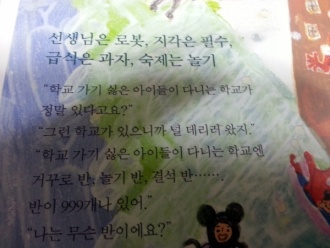 선생님은 로봇, 지각은 필수,
급식은 과자, 숙제는 놀기
“학교 가기 싫은 아이들이 다니는 학교가
정말 있다고요?”
“그런 학교가 있으니까 널 데리러 왔지.”
“학교 가기 싫은 아이들이 다니는 학교엔
거꾸로 반, 놀기 반, 결석 반…….
반이 999개나 있어.”
“나는 무슨 반이에요?”